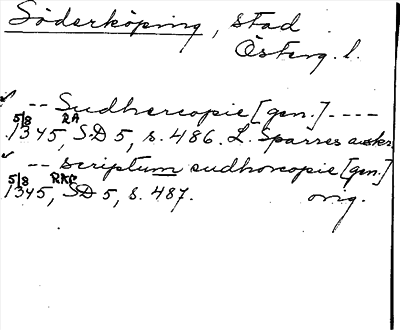 Söderköping, stad
Österg. l.
-- Sudhercopie [gen.] ----
5/8 RA
1345, SD 5, s. 486. L. Sparres avskr.
-- scriptum sudhorcopie [gen.]
5/8 RAP
1345, SD 5, s. 487. orig.